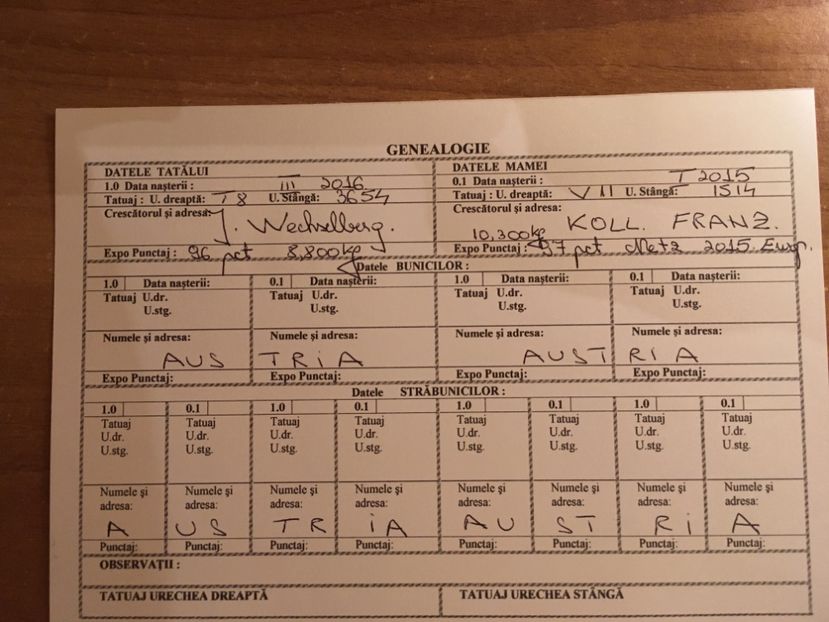 GENEALOGIE
DATELE TATĂLUI
1.0 Data nașterii : III 2016
Tatuaj : U. dreaptă: T 8 U. Stângă: 3654
Crescătorul și adresa: J. Wechselberg.
Expo Punctaj : 96 pct 8,800kg
DATELE MAMEI
0.1 Data nașterii : I 2015
Tatuaj : U. dreaptă: VII U. Stângă: 1514
Crescătorul și adresa: KOLL. FRANZ.
10,300kg
Expo Punctaj : 97 pct Metz 2015. Europ.
Datele BUNICILOR :
1.0 Data nașterii: 0.1 Data nașterii: 1.0 Data nașterii: 0.1 Data nașterii:
Tatuaj U.dr. Tatuaj U.dr. Tatuaj U.dr. Tatuaj U.dr.
U.stg. U.stg. U.stg. U.stg.
Numele și adresa: Numele și adresa: Numele și adresa: Numele și adresa:
AUSTRIA AUSTRIA
Expo Punctaj: Expo Punctaj: Expo Punctaj: Expo Punctaj:
Datele STRĂBUNICILOR :
1.0 0.1 1.0 0.1 1.0 0.1 1.0 0.1
Tatuaj Tatuaj Tatuaj Tatuaj Tatuaj Tatuaj Tatuaj Tatuaj
U.dr. U.dr. U.dr. U.dr. U.dr. U.dr. U.dr. U.dr.
U.stg. U.stg. U.stg. U.stg. U.stg. U.stg. U.stg. U.stg.
Numele și Numele și Numele și Numele și Numele și Numele și Numele și Numele și
adresa: adresa: adresa: adresa: adresa: adresa: adresa: adresa:
A US TR iA AU ST Ri A
Punctaj: Punctaj: Punctaj: Punctaj: Punctaj: Punctaj: Punctaj: Punctaj:
OBSERVAȚII :
TATUAJ URECHEA DREAPTĂ TATUAJ URECHEA STÂNGĂ